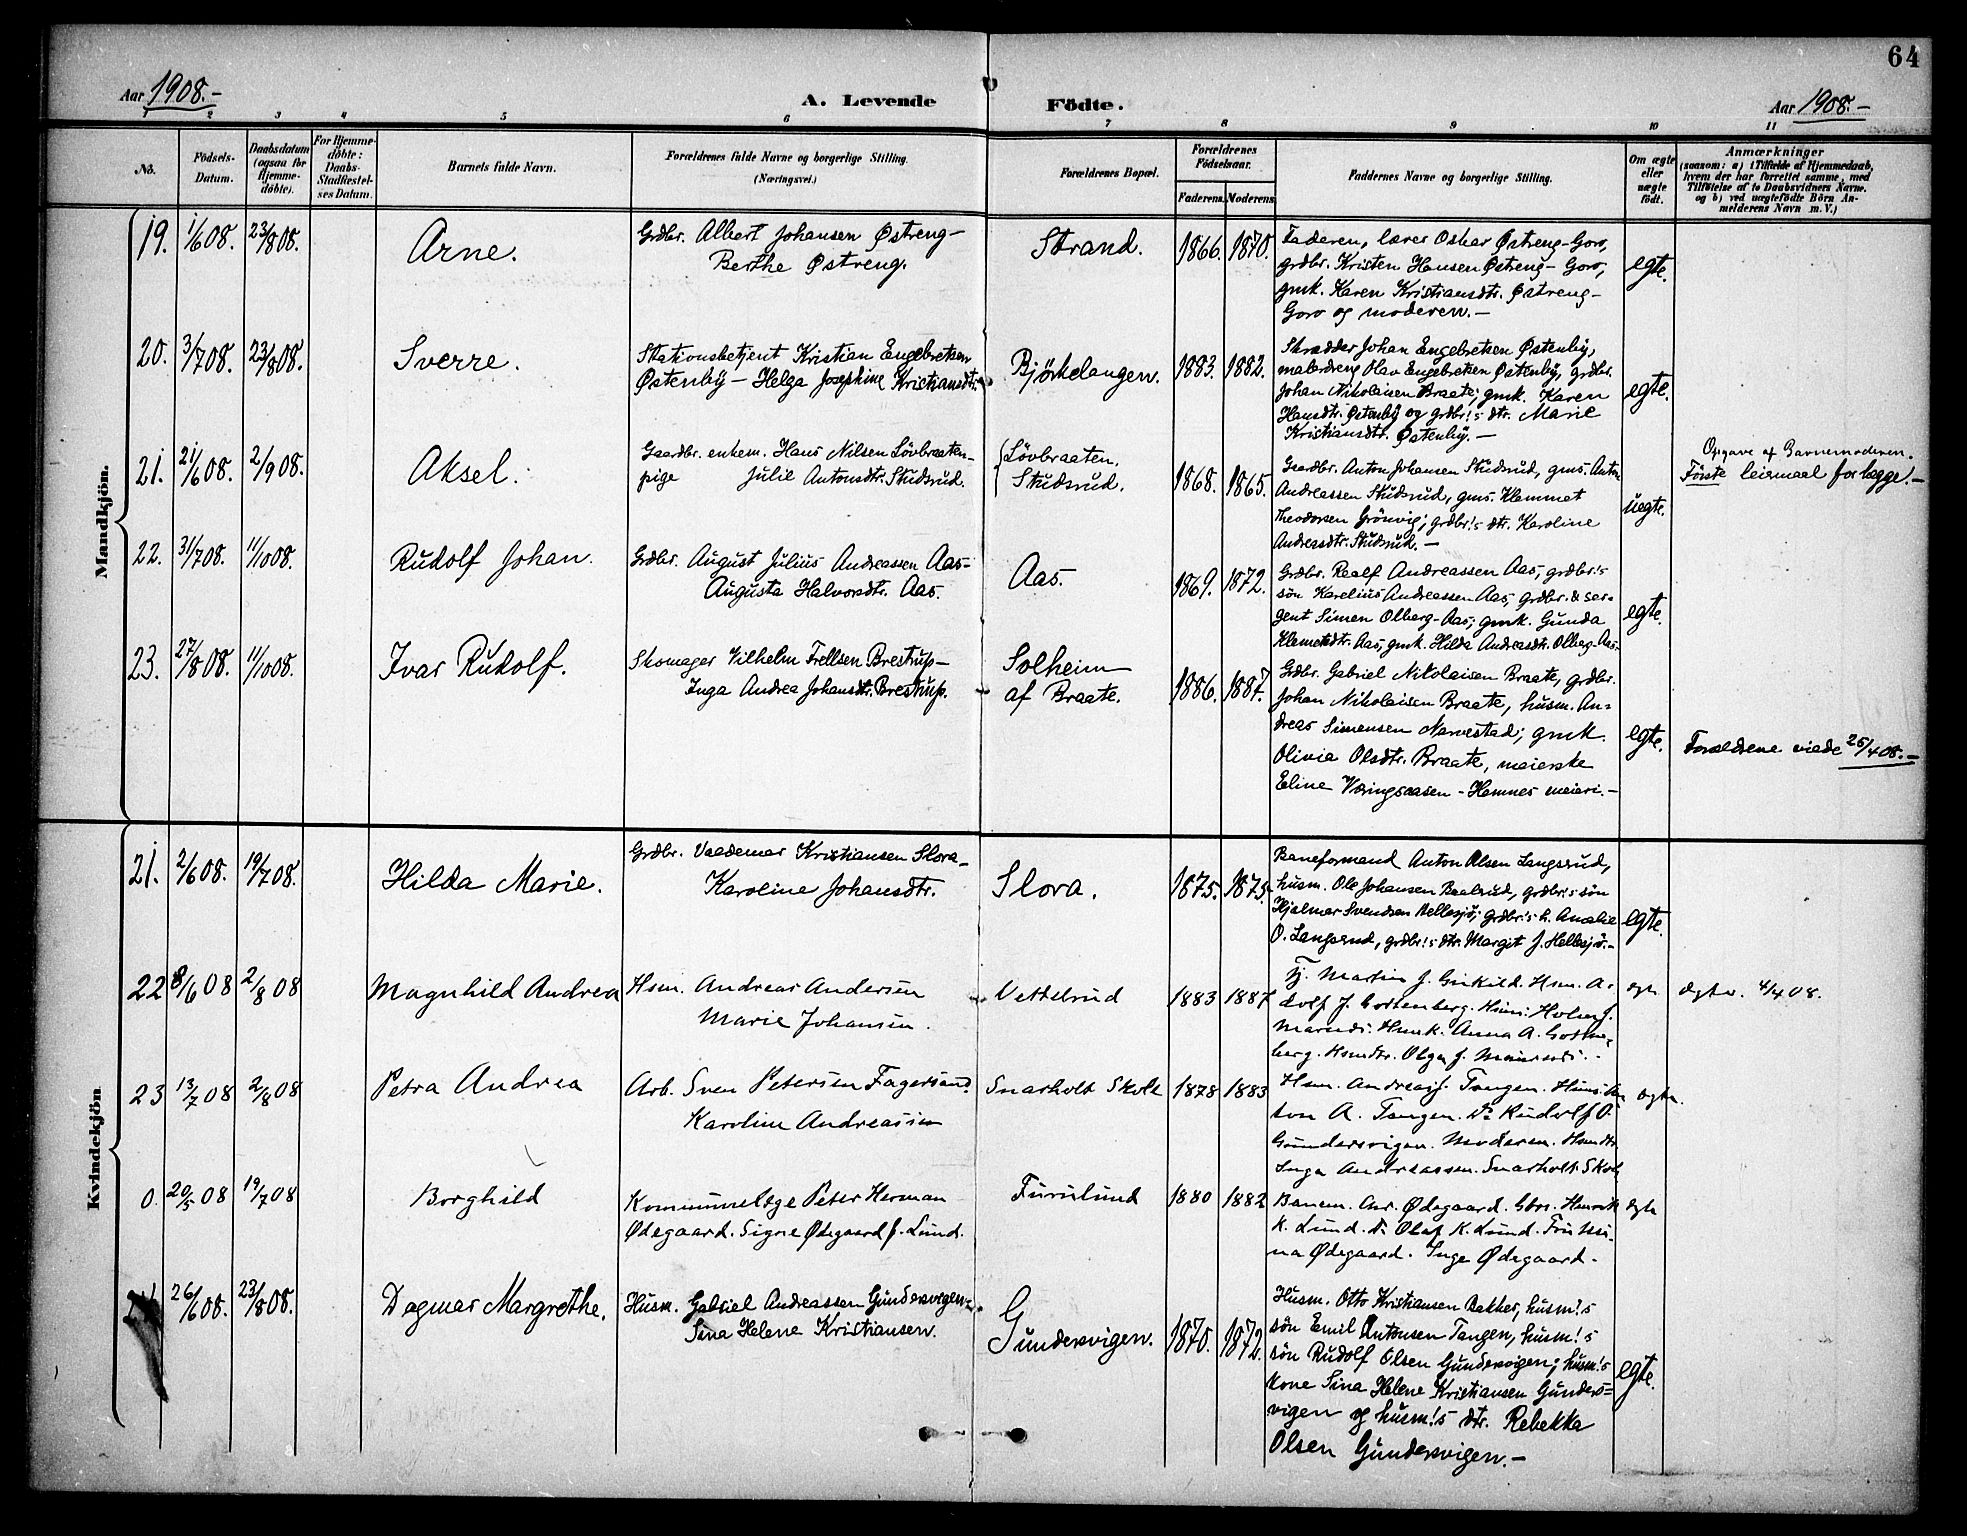 64
Aar 1908.-
A. Levende Födte.
Aar 1908.-
1 2 3 4 5 6 7 8 9 10 11
No.
Födsels-Datum.
Daabsdatum (ogsaa for Hjemme-döbte).
For Hjemme-döbte: Daabs-Stadfæstel-ses Datum.
Barnets fulde Navn.
Forældrenes fulde Navne og borgerlige Stilling.
(Næringsvei.)
Forældrenes Bopæl.
Forældrenes Födselsaar.
Faderens. Moderens.
Faddernes Navne og borgerlige Stilling.
Om ægte eller uægte födt.
Anmærkninger
(saasom: a) i Tilfælde af Hjemmedaab,
hvem der har forrettet samme, med
Tilföielse af to Daabsvidners Navne.
og b) ved uægtefödte Börn An-
melderens Navn m. V.)
Mandkjön.
19. 1/6 08. 23/8 08. Arne.
Grdbr. Albert Johansen Østreng-
Berthe Østreng.
Strand. 1866. 1870.
Faderen, lærer Oskar Østreng-Goro,
grdbr. Kristen Hansen Østreng-Goro,
gmk. Karen Kristiansdtr. Østreng-
Goro og moderen.-
egte.
20. 3/7 08. 23/8 08. Sverre.
Stationsbetjent Kristian Engebretsen
Østenby - Helga Josephine Kristiansdtr.
Bjørkelangen. 1883. 1882.
Skrædder Johan Engebretsen Østenby,
malerdreng Olav Engebretsen Østenby, grdbr.
Johan Nikolaisen Braate; gmk. Karen
Hansdtr. Østenby og grdbr!s dtr. Marie
Kristiansdtr. Østenby.-
egte.
21. 21/6 08. 2/9 08. Aksel.
Gaardbr. enkem. Hans Nilsen Lövbraaten-
pige Julie Antonsdtr. Studsrud.
Lövbraaten.
Studsrud.
1868. 1865.
Gaardbr. Anton Johansen Studsrud, gms. Anton
Andreassen Studsrud, gms. Klemmet
Theodorsen Grönvig; grdbr!s dtr. Karoline
Andreasdtr. Studsrud.-
uegte.
Opgave af Barnemoderen.
Første leiermaal for begge.-
22. 31/7 08. 11/10 08. Rudolf Johan.
Grdbr. August Julius Andreassen Aas-
Augusta Halvorsdtr. Aas.
Aas. 1869. 1872.
Grdbr. Realf Andreassen Aas, grdbr!s
sön Karelius Andreassen Aas, grdbr. & ser-
gent Simen Olberg-Aas; gmk. Gunda
Klemetsdtr. Aas, gmk. Hilda Andreasdtr. Olberg-Aas.
egte.
23. 27/8 08. 11/10 08. Ivar Rudolf.
Skomager Vilhelm Frellsen Brestrup-
Inga Andrea Johansdtr. Brestrup.
Solheim
af Braate.
1886. 1887.
Grdbr. Gabriel Nikolaisen Braate, grdbr.
Johan Nikolaisen Braate, husm. An-
dreas Simensen Narvestad; gmk.
Olivia Olsdtr. Braate, meierske
Eline Væringsaasen - Hemnes meieri.-
egte.
Forældrene viede 25/4 08.-
Kvindekjön
21. 2/6 08. 19/7 08. Hilda Marie.
Grdbr. Valdemar Kristiansen Slora-
Karoline Johansdtr.
Slora. 1875. 1875.
Baneformand Anton Olsen Langsrud,
husm. Ole Johansen Baalsrud, grdbr!s sön
Hjalmar Svendsen Hellesjö; grdbr!s h. Amalie
O. Langsrud, grdbr!s dtr. Margit J. Hellesjö.-
egte.
22 8/6 08 2/8 08 Magnhild Andrea
Hsm. Andreas Andersen
Marie Johansen.
Vettelsrud 1883 1887
Tj. Martin J. Hsm. A-
dolf J.
Hsmk. Anna A.
berg. Hsmdtr. Olga J.
egte
Ægtev. 4/4 08.
23 13/7 08 2/8 08 Petra Andrea
Arb. Sven Petersen Fagersand.
Karoline Andreassen
Snarholt Skole 1878 1883
Hsm. Andreas J. Tangen.
ton A. Tangen. Do Rudolf O.
Gundersvigen. Moderen. Hsmdtr.
Inga Andreassen. Snarholt Skole
egte.
0. 20/5 08 19/7 08 Borghild
Kommunelæge Peter Herman
Ødegaard. Signe Ødegaard f. Lund.
Furulund 1880 1882
Banem. Ødegaard. Henrik
K. Lund. Do Olaf K. Lund.
na Ødegaard. Inge Ødegaard.
egte
26/6 08. 23/8 08. Dagmar Margrethe.
Husm. Gabriel Andreassen Gundersvigen-
Sina Helene Kristiansen.
Gundersvigen. 1870. 1872.
Husm. Otto Kristiansen Bakker, husm!s
sön Emil Antonsen Tangen, husm!s
sön Rudolf Olsen Gundersvigen; husm!s
kone Sina Helene Kristiansen Gunders-
vigen og husm!s dtr. Rebekka
Olsen Gundersvigen.-
egte.